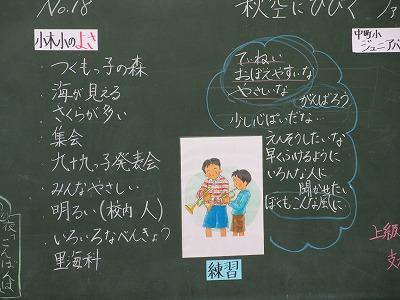 No.18
秋空にひびく ファ
小木小のよさ
中町小
ジュニアバ
・つくもっ子の森
・海が見える
・さくらが多い
・集会
・九十九っ子発表会
・みんなやさしい
・明るい(校内 人)
・いろいろなべんきょう
・里海科
ていねい
おぼえやすいな
やさしいな
がんばろう
少し心ぱいだな…
えんそうしたいな
早くふけるように
いろんな人に
聞かせたい
ぼくもこんな風に
練習
上級
支